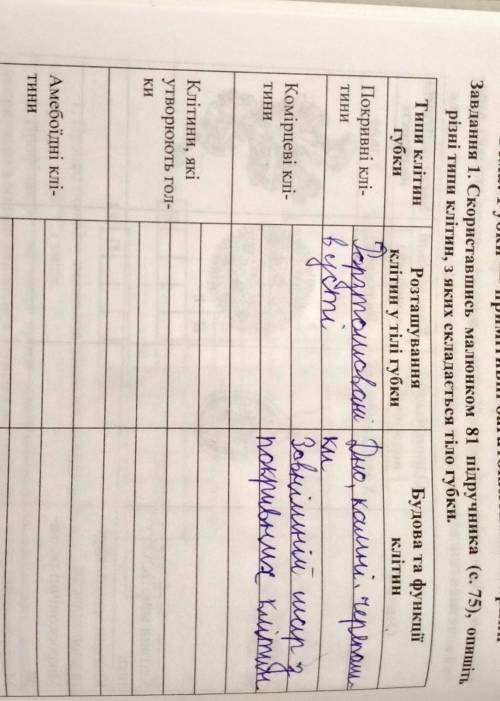 губки
Завдання 1. Скориставшись малюнком 81 підручника (с. 75), опишіть
різні типи клітин, з яких складається тіло губки.
Типи клітин
губки
Розташування
клітин у тілі губки
Будова та функції
клітин
Покривні клі-
тини
в усті
Дно, камні, черепаш-
ки
Комірцеві клі-
тини
Зовнішній шар з
покривних клітин
Клітини, які
утворюють гол-
ки
Амебоїдні клі-
тини